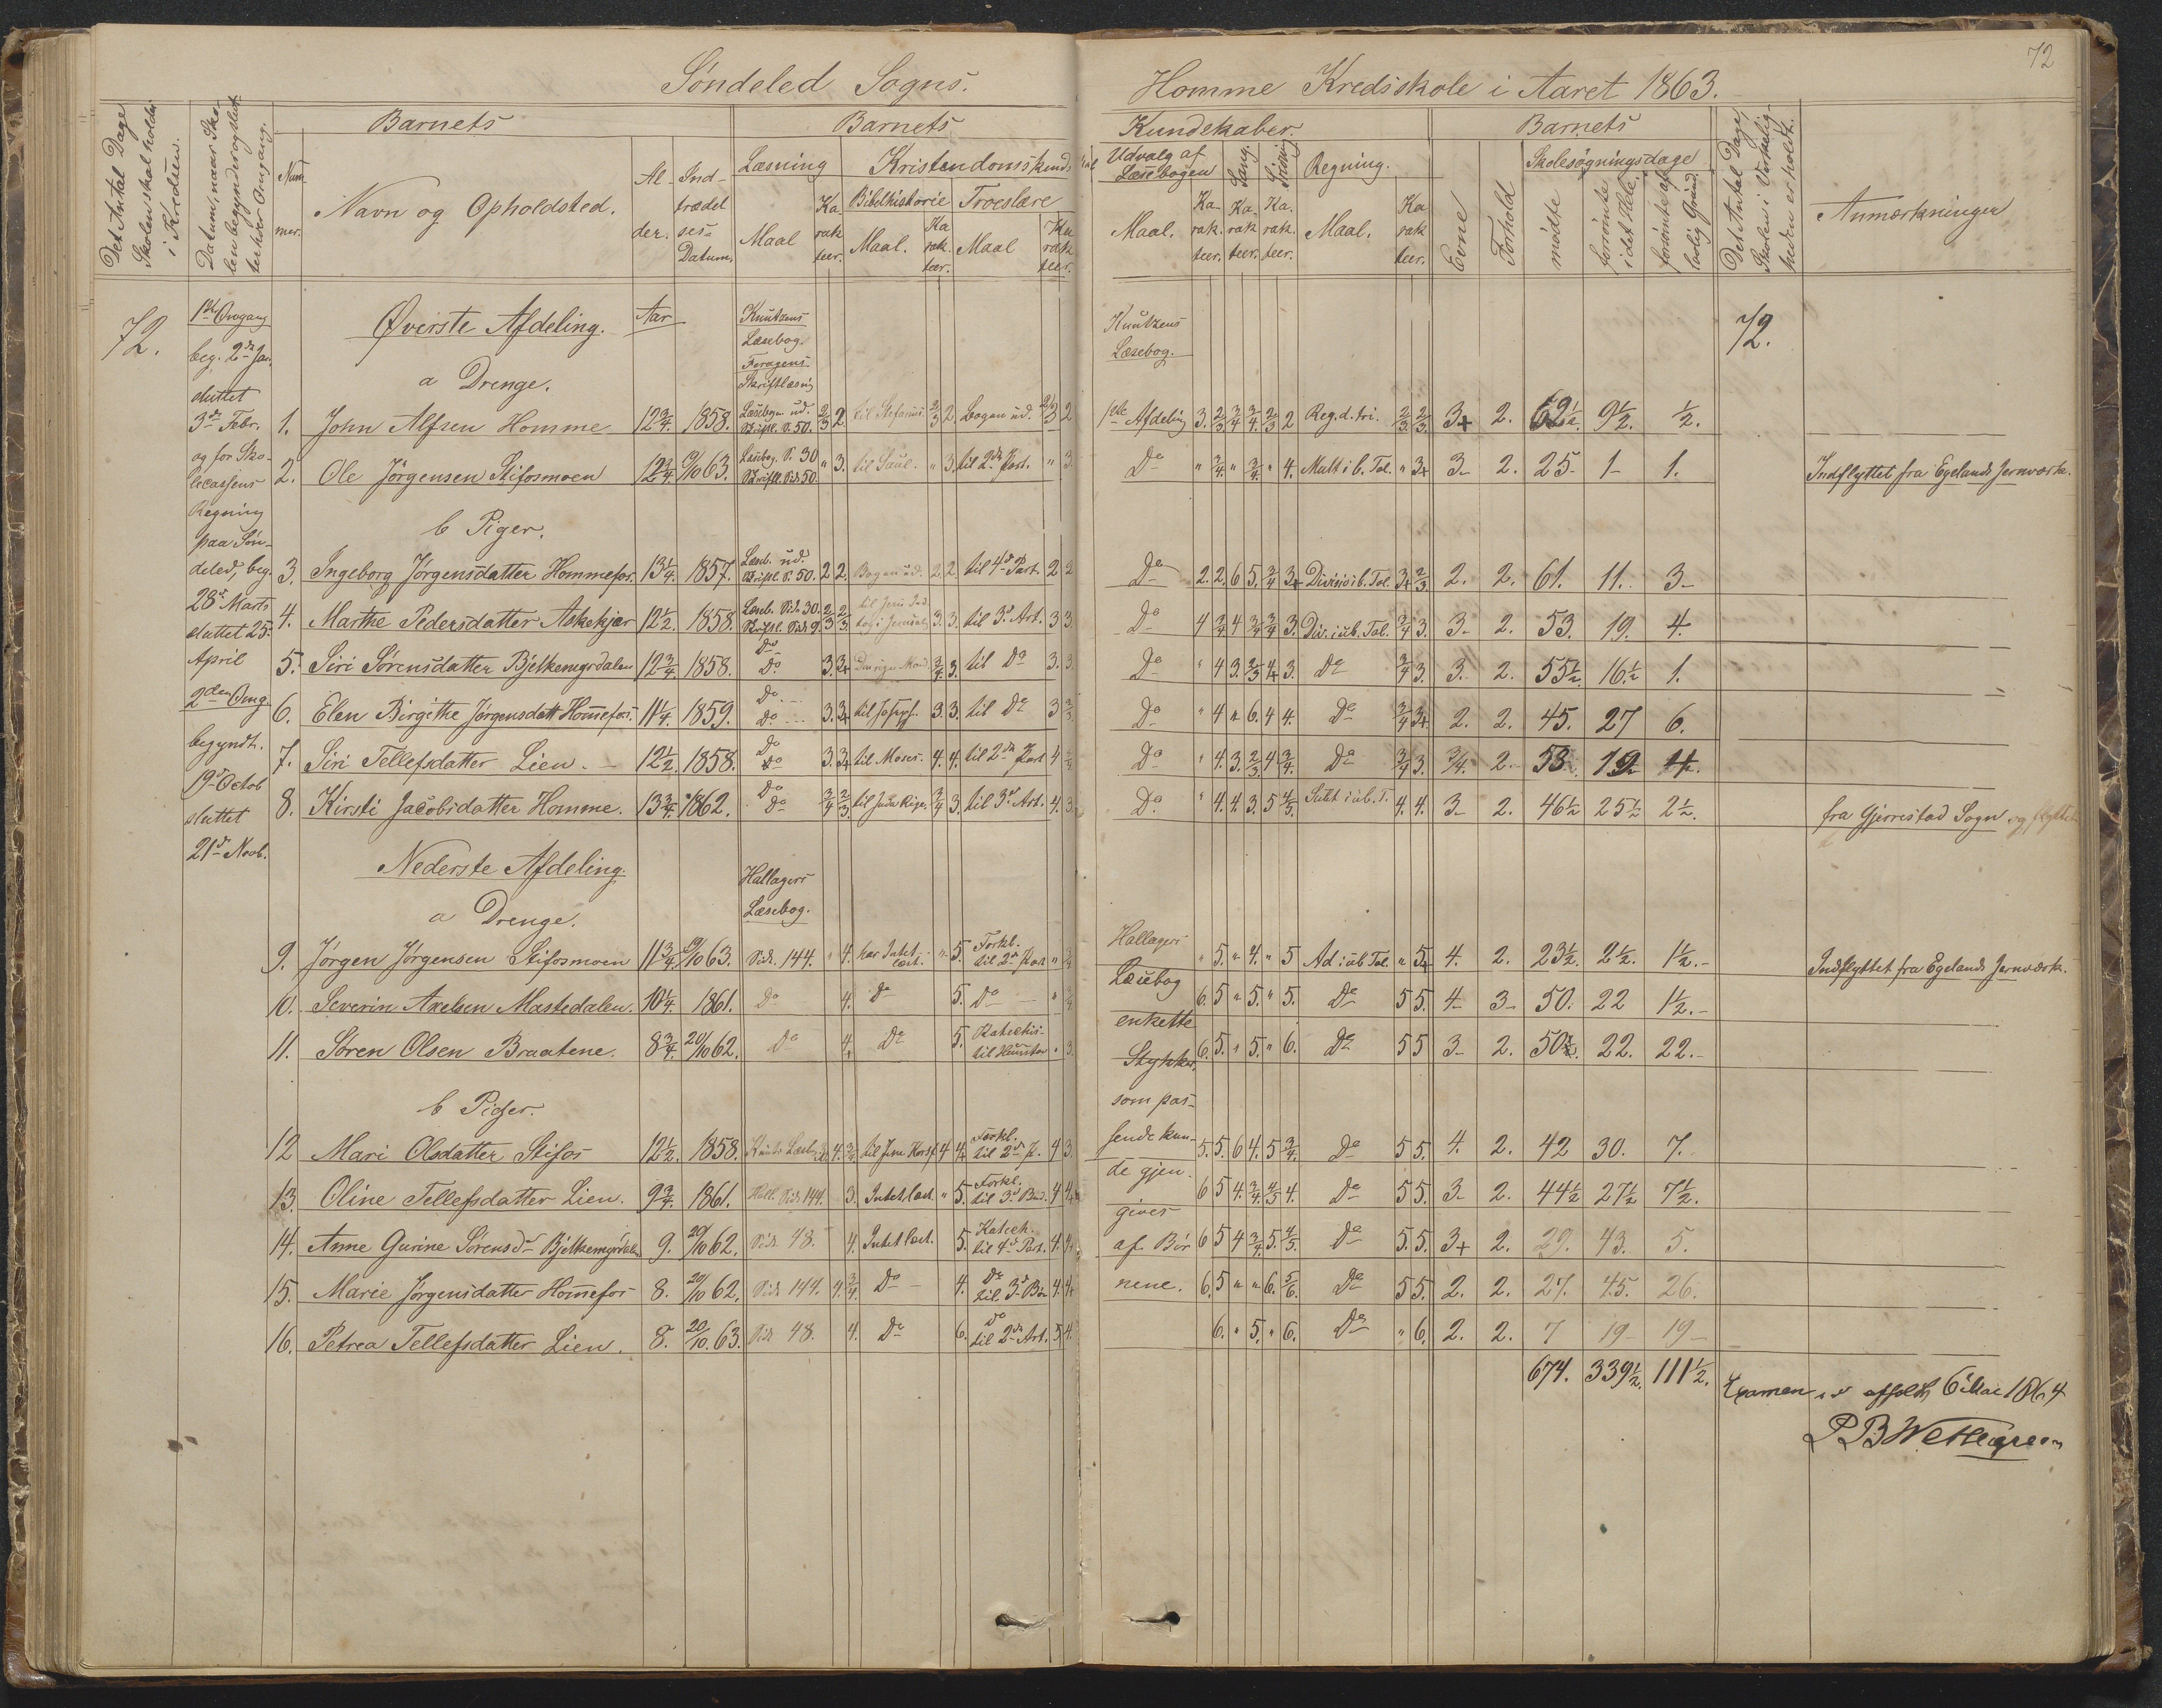 72
Søndeled Sogns.
Homme Kredsskole i Aaret 1863.
Det Antal Dage Skolen skal holdes i Kredsen.
Datum, naar Skolen begynder og slutter hver Omgang.
Nummer.
Barnets
Navn og Opholdsted.
Alder.
Indtrædelses-Datum.
Barnets
Læsning
Maal
Karakteer.
Kristendomskundskab
Bibelhistorie
Maal.
Karakteer.
Troeslære
Maal
Karakteer.
Kundskaber.
Udvalg af Læsebogen
Maal.
Karakteer.
Sang.
Karakteer.
Skrivning
Karakteer.
Regning.
Maal.
Karakteer.
Barnets
Evne
Forhold
Skolesøgningsdage
mødte
forsømte i det Hele.
forsømte af lovlig Grund.
Det Antal Dage, Skolen i Virkeligheden er holdt.
Anmærkninger
72.
1ste Omgang
beg. 2den Jan.
sluttet
3die Febr.
og for Skolecassens
Regning
paa Søndeled, beg.
28de Marts
sluttet 25.
April
2den Omg.
begyndt.
19de Octob
sluttet
21de Novb.
Øverste Afdeling.
Aar
Knutzens
Læsebog.
Knutzens
Læsebog.
72.
a Drenge.
Skriftlæsning
1. John Alfsen Homme 12 3/4. 1858. Læsebogen ud. S. 50. 2/3 2. til Stefanus 2/3 2. Bogen ud. 2/3 2 1ste Afdeling 3. 2/3. 3/4 3/4. 2/3 2 Reg. d. tri. 2/3. 2/3. 3+ 2. 62 1/2. 9 1/2. 1/2.
2. Ole Jörgensen Stifosmoen 12 3/4. 19/10 63. Læsebog. S. 30 Skriftl. Side 50. " 3. til Saul. " 3. til 2den Part. " 3 Do " 3/4. " 3/4. " 4. Mult i b. Tal. " 3+ 3- 2. 25- 1- 1. Indflyttet fra Egelands Jernværk.
b Piger.
3. Ingeborg Jörgensdatter Hommefos. 13 1/4. 1857. Læseb. ud. Skriftl. S. 50. 2 2. Bogen ud. 2 2. til 4de Part. 2 2 Do 2. 2. 6 5. 3/4 3+ Divis i b. Tal. 3+ 2/3 2. 2. 61. 11. 3-
4. Marthe Pedersdatter Askekjær 12 1/2. 1858. Læseb. Side 30. Skriftl. Side 9. 2/3 2/3. 3. 3. til 3. Art. 3 3. Do 4 3/4 4 3/4 3/4 3. Div. i ub. Tal. 3/4 3. 3- 2. 53. 19. 4.
5. Siri Sörensdatter Bjelkemyrdalen 12 3/4. 1858. Do Do 3. 3+ 3/4. 3. til Do 3. 3. Do " 4 3. 2/3 4+ 3. Do 3/4 3. 3. 2. 55 1/2. 16 1/2 1.
6. Elen Birgithe Jörgensdatt Hommefos. 11 1/4. 1859. Do Do 3. 3+ til Josef. 3. 3. til Do 3 Do " 4 " 6. 4 4. Do 3/4 3+ 2. 2. 45. 27 6.
7. Siri Tellefsdatter Lien. 12 1/2. 1858. Do Do 3. 3+ til Moses. 4. 4. til 2den Part 4 Do " 4. 3. 2/3 4 3/4. Do 3/4 3. 3/4. 2. 53. 19 4.
8. Kirsti Jacobsdatter Homme. 13 3/4. 1862. Do Do 3/4 2/3. til Juda Riger. 3/4 3. til 3. Art. 4. 3. Do " 4. 4. 3. 5 4/5. Subt i ub. T. 4. 4. 3- 2. 46 1/2 25 1/2 2 1/2. fra Gjerrestad Sogn og flyttet
Nederste Afdeling.
Hallagers
Læsebog.
a Drenge.
9. Jørgen Jörgensen Stifosmoen 11 3/4. 19/10 63. Side. 144. " 4. har Intet læst. " 5. Forkl. til 2den Part Hallagers " 5. " 4. " 5 Ad i ub Tal. " 5+ 4. 2. 23 1/2. 2 1/2. 1 1/2. Indflyttet fra Egelands Jernværk.
10. Severin Axelsen Mastedalen. 10 1/4. 1861. Do 4. Do 5. Do Læsebog 6. 5 " 5. " 5. Do 5 5. 4- 3- 50. 22 1 1/2.
enkelte
11. Søren Olsen Braatene. 8 3/4. 20/10 62. Do 4. Do 5. Katechis- 3. Stykker, 6. 5. " 5. " 6. Do 5 5 3- 2. 50 1/2. 22. 22.
som passende kunde gjengives af Børnene.
b Piger.
12 Mari Olsdatter Stifos 12 1/2. 1858. 4. 3/4. til Jesu Korsf 4 4 Forkl. til 2den P. 4 3. 5. 5. 6 4. 5 3/4. Do 5 5. 4. 2. 42 30. 7.
13. Oline Tellefsdatter Lien. 9 3/4. 1861. Hall. Side 144. 3. Intet læst. " 5. Forkl. til 3. Bud. 4 4 6 5 4. 3/4. 4/5 4. Do 5 5. 3- 2. 44 1/2 27 1/2 7 1/2.
14. Anne Gurine Sörensdr Bjelkemyrdalen 9. 20/10 62. Side 48. 4. Intet læst. 5. Katech. til 4de Part. 4. 4. 6 5 4 3/4. 5. 4/5. Do 5. 5. 3+ 2. 29. 43. 5.
15. Marie Jörgensdatter Hommefos 8. 20/10 62. Side 144. 4. 3/4. Do 4. Do til 3. Bøn 4. 4. 6. 5 " " 6. 5/6. Do 5 5. 2. 2. 27. 45. 26.
16. Petrea Tellefsdatter Lien. 8. 20/10. 63. Side 48. 4. Do 6. Do til 2den Art. 5. 4. 6. " 5. " 6. Do " 6. 2. 2. 7 19- 19-
674. 339 1/2. 111 1/2.
Examen afholdt 6 Mai 1864
P. B. Wettergreen